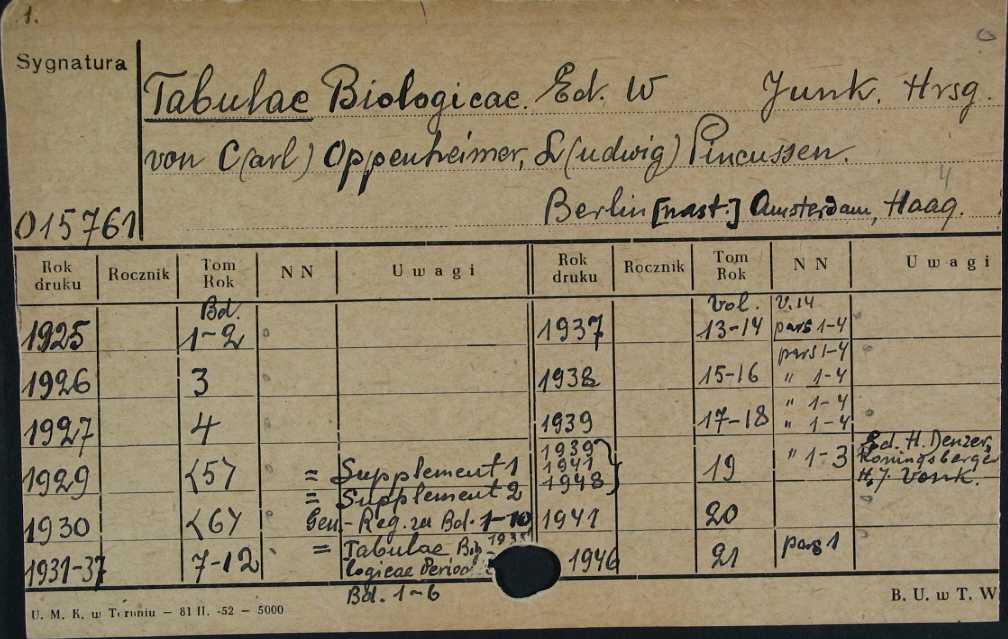 1.
Sygnatura
Tabulae Biologicae. Ed. W Junk. Hrsg.
von C(arl) Oppenheimer, L(udwig) Pincussen.
4
015761 Berlin [nast.] Amsterdam, Haag.
Rok druku Rocznik Tom Rok NN Uwagi Rok druku Rocznik Tom Rok NN Uwagi
Bd. vol. v.14
1925 1-2 1937 13-14 pars 1-4
pars 1-4
1926 3 1938 15-16 " 1-4
" 1-4
1927 4 1939 17-18 " 1-4
1929 <5> = Supplement 1 1939 1941 1948 19 " 1-3 Ed. H. Denzer,
Koningsberger
H. J. Vonk.
= Supplement 2
1930 <6> Gen.-Reg. zu Bd. 1-10 1941 20
1931-37 7-12 = Tabulae Bio- 1946 21 pars 1
logicae Period
Bd. 1-6
U. M. K. w Toruniu - 81 II. -52 - 5000 B. U. w T. W